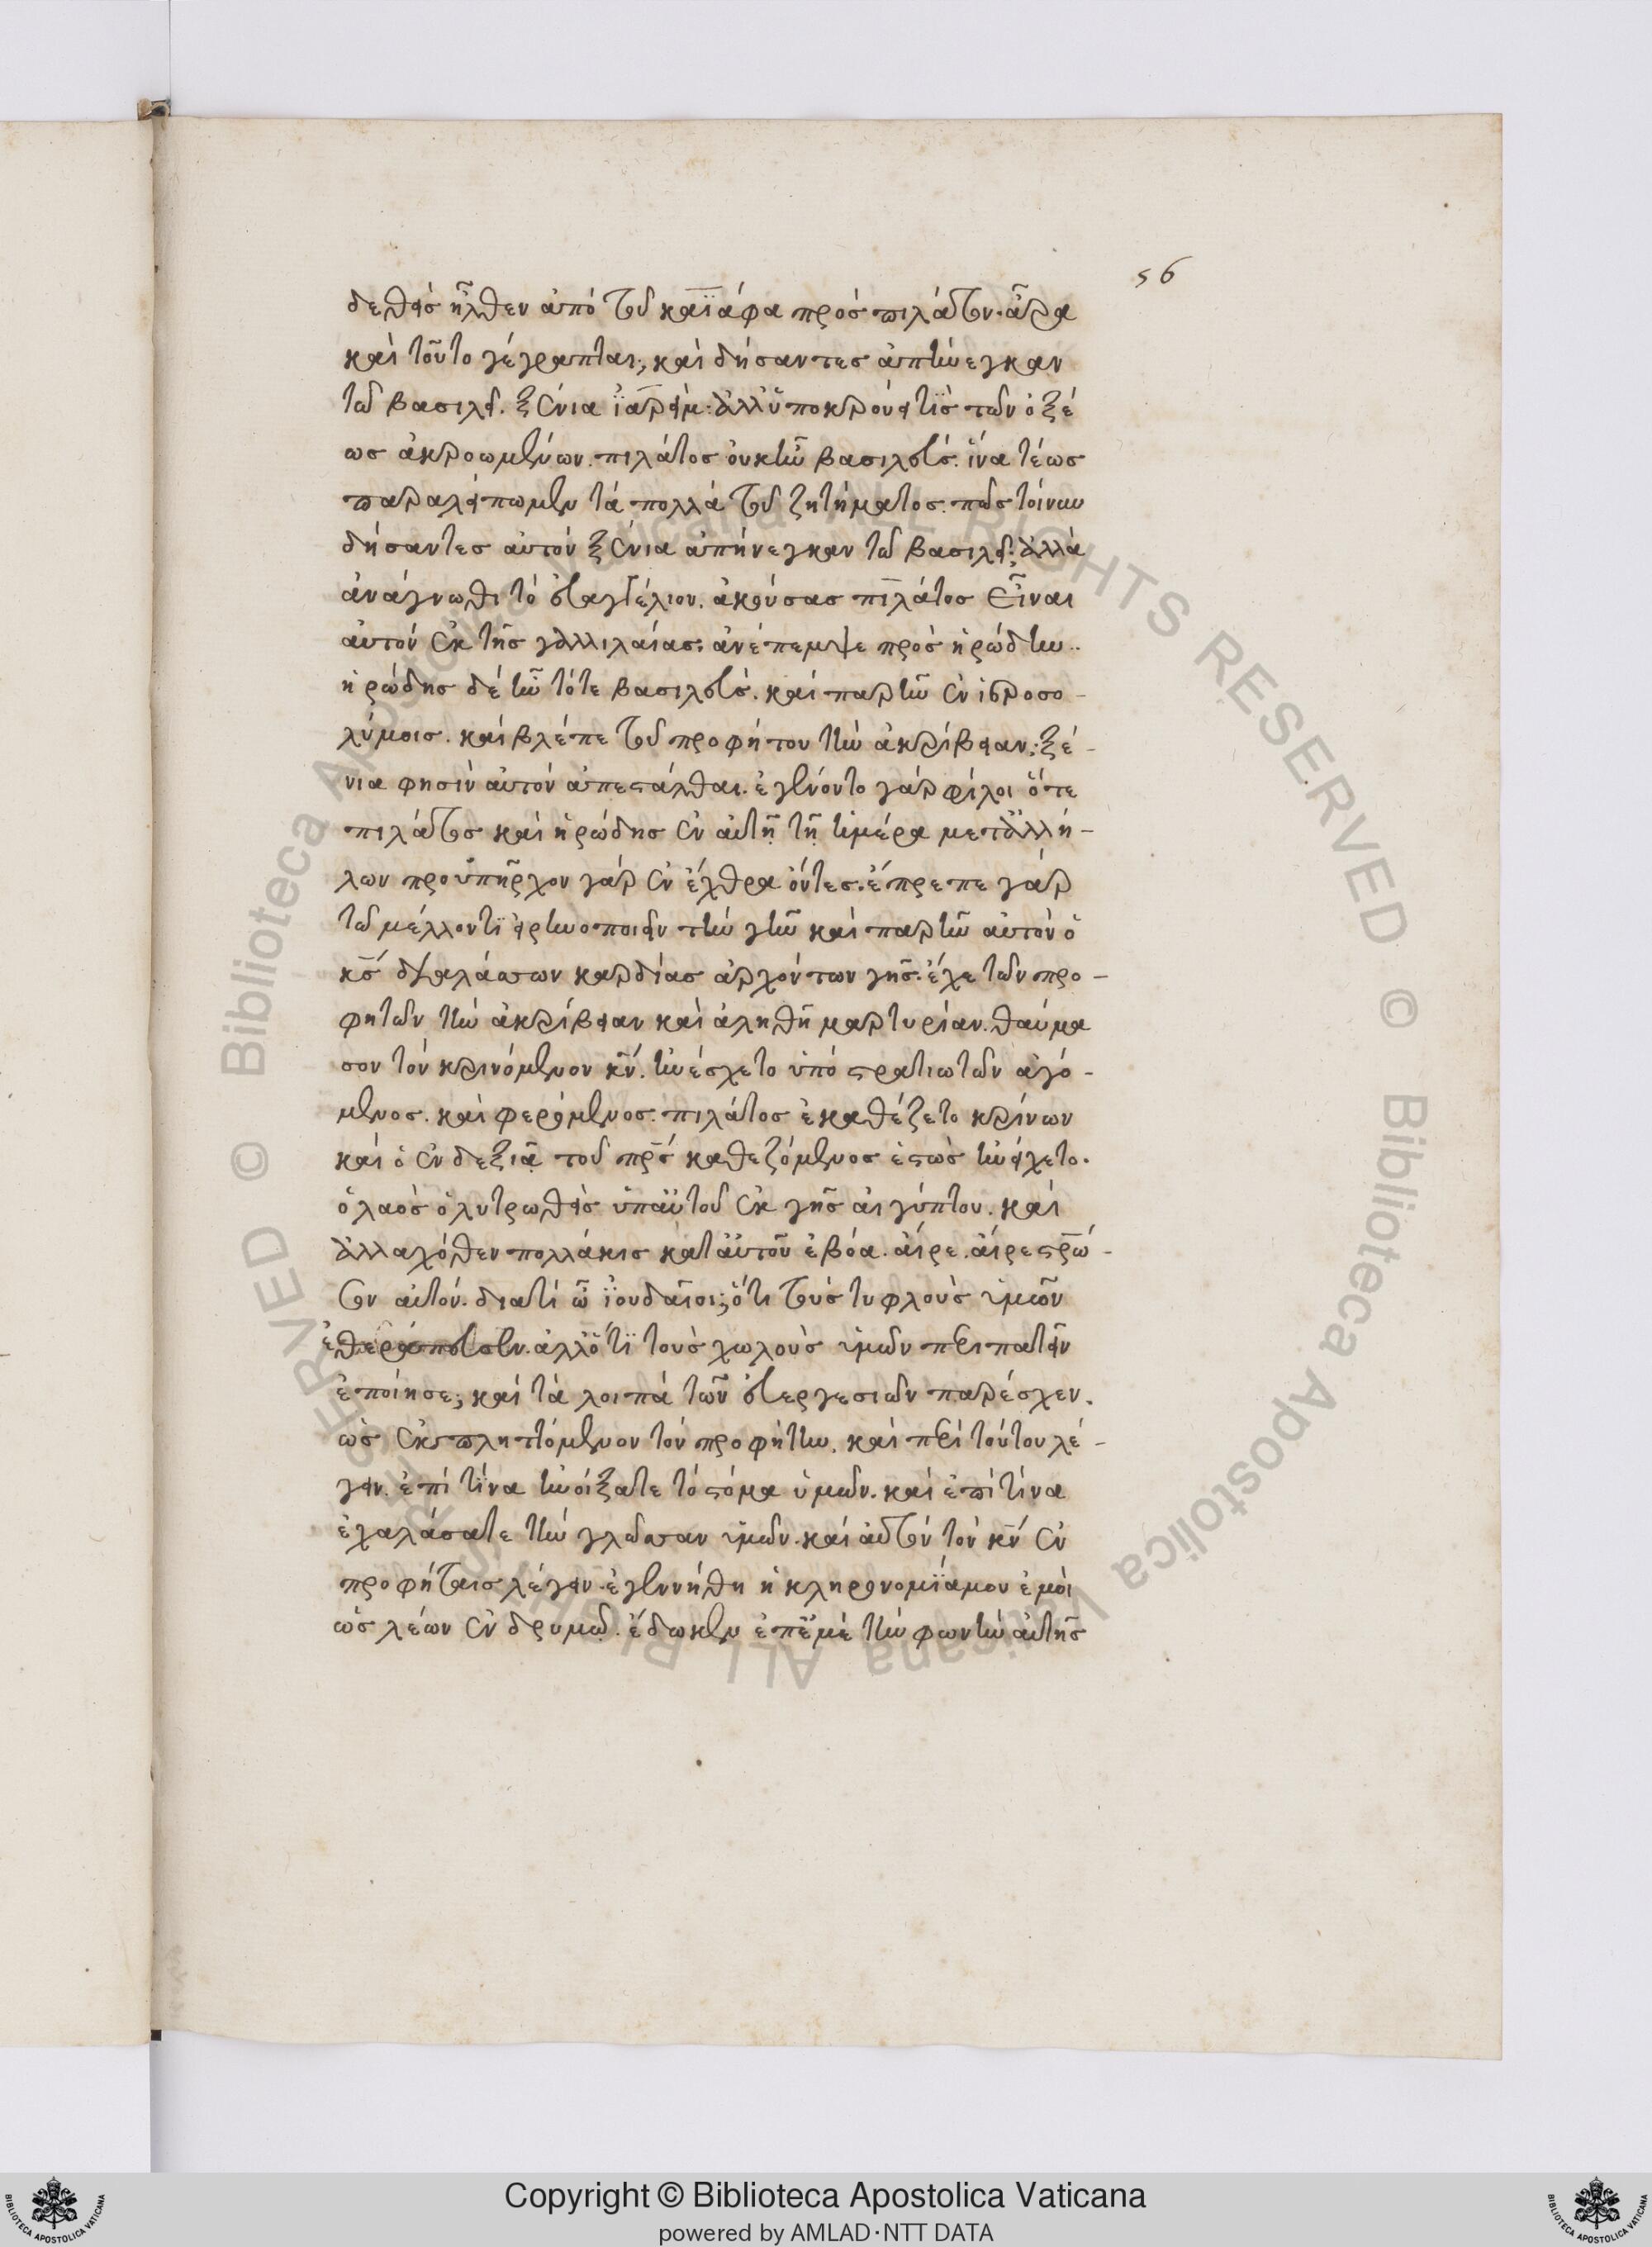 56
δεθεὶς ἦλθεν ἀπὸ τοῦ καϊάφα πρὸς πιλάτον. ἆρα
καὶ τοῦτο γέγραπται; καὶ δήσαντες ἀπήνεγκαν
τῶ βασιλεῖ. ξένια ϊαρείμ: ἀλλ' ὑποκρούει τὶς τῶν ὀξέ
ως ἀκροωμένων. πιλάτος οὐκ ἦν βασιλεύς. ἵνα τέως
παραλείπωμεν τὰ πολλὰ τοῦ ζητήματος. πῶς τοίνυν
δήσαντες αὐτὸν ξένια ἀπήνεγκαν τῶ βασιλεῖ; ἀλλὰ
ἀνάγνωθι τὸ εὐαγγέλιον. ἀκούσας πιλάτος εἶναι
αὐτὸν ἐκ τῆς γαλλιλαίας. ἀνέπεμψε πρὸς ἡρώδην..
ἡρώδης δὲ ἦν τότε βασιλεύς. καὶ παρῆν ἐν ἱεροσο-
λύμοις. καὶ βλέπε τοῦ προφήτου τὴν ἀκρίβειαν: ξέ-
νια φησὶν αὐτὸν ἀπεστάλθαι. ἐγένοντο γὰρ φίλοι ὅτε
πιλάτος καὶ ἡρώδης ἐν αὐτῆ τῆ ἡμέρα μετ' ἀλλή-
λων προϋπῆρχον γὰρ ἐν ἔχθρα ὄντες. ἔπρεπε γὰρ
τῶ μέλλοντι εἰρηνοποιεῖν τὴν γῆν καὶ παρῆν αὐτὸν ὁ
κς διαλάσσων καρδίας ἀρχόντων γῆς. ἔχε τῶν προ-
φητῶν τὴν ἀκρίβειαν καὶ ἀληθῆ μαρτυρίαν. θαύμα
σον τὸν κρινόμενον κν. ἠνέσχετο ὑπὸ στρατιωτῶν ἀγό-
μενος. καὶ φερόμενος. πιλάτος ἐκαθέζετο κρίνων
καὶ ὁ ἐν δεξιᾶ τοῦ πρς καθεζόμενος ἑστὼς ἠνείχετο.
ὁ λαὸς ὁ λυτρωθεὶς ὑπ' αὐτοῦ ἐκ γῆς αἰγύπτου. καὶ
ἀλλαχόθεν πολλάκις κατ' αὐτοῦ ἐβόα. αἶρε. αἶρε στρώ-
σον αὐτόν. διατί ὦ ϊουδαῖοι; ὅτι τοὺς τυφλοὺς ὑμῶν
ἐθεράπευσεν. ἀλλ' ὅτι τοὺς χωλοὺς ὑμῶν περιπατεῖν
ἐποίησε; καὶ τὰ λοιπὰ τῶν εὐεργεσιῶν παρέσχεν.
ὡς ἐκπληττόμενον τὸν προφήτην. καὶ περὶ τούτου λέ-
γειν. ἐπὶ τίνα ἠνοίξατε τὸ στόμα ὑμῶν. καὶ ἐπὶ τίνα
ἐχαλάσατε τὴν γλῶσσαν ὑμῶν. καὶ αὐτὸν τὸν κν ἐν
προφήταις λέγειν. ἐγεννήθη ἡ κληρονομία μου ἐμοὶ
ὡς λέων ἐν δρυμῶ. ἔδωκεν ἐπ' ἐμὲ τὴν φωνὴν αὐτῆς
Copyright © Biblioteca Apostolica Vaticana
powered by AMLAD·NTT DATA